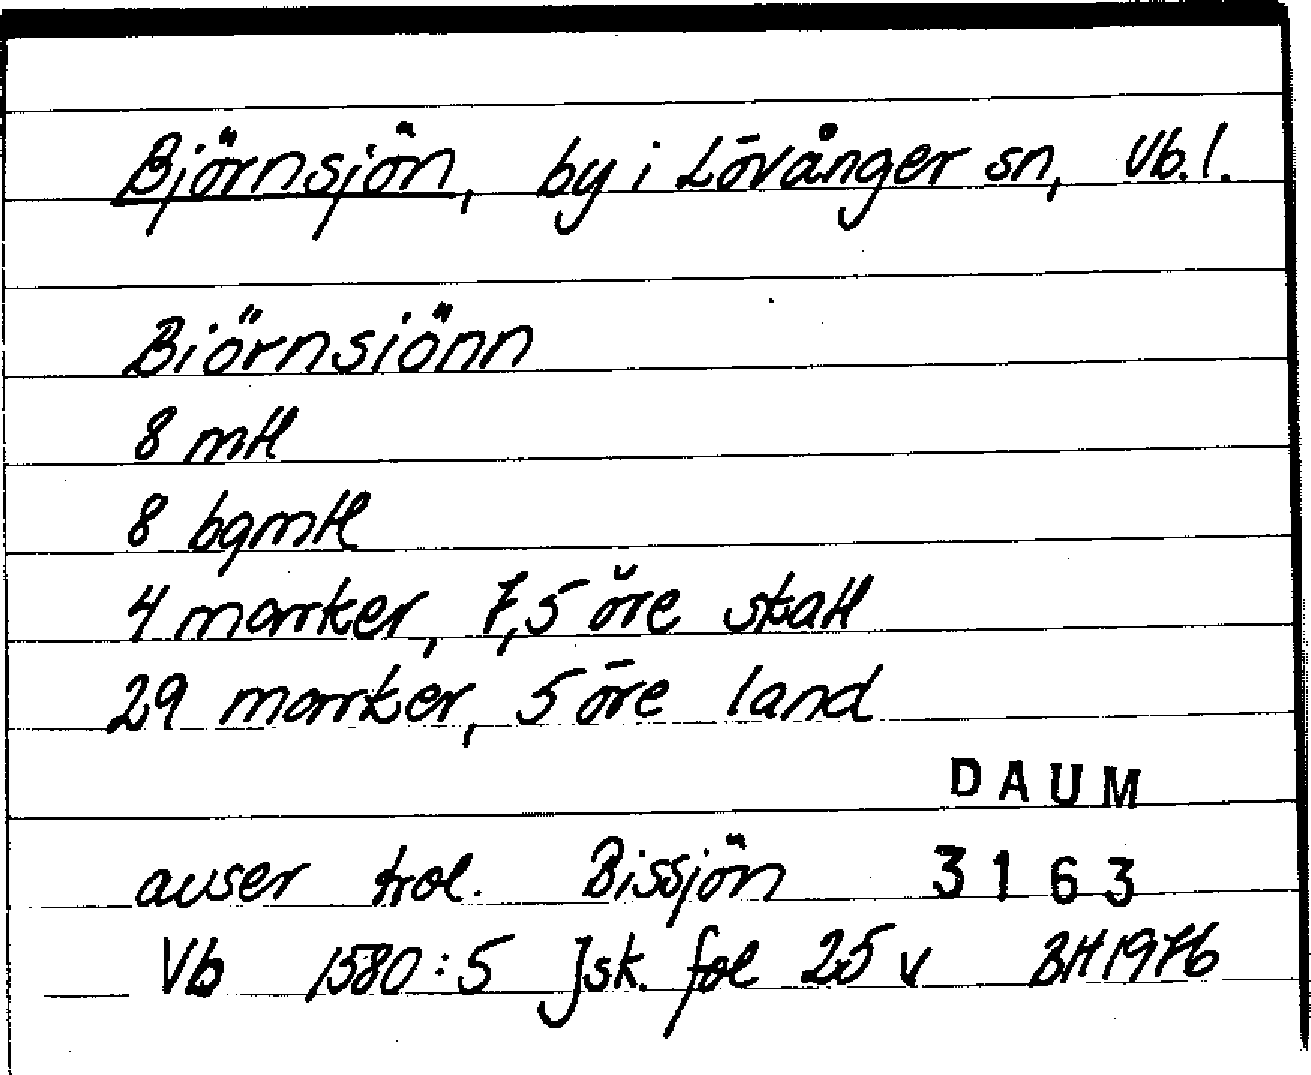 Björnsjön, by i Lövånger sn, Vb.l.
Biörnsiönn
8 mtl
8 bgmtl
4 marker, 7,5 öre skatt
29 marker, 5 öre land
DAUM
avser trol. Bissjön 3163
Vb 1580:5 Jsk. fol 25 v BH 1976